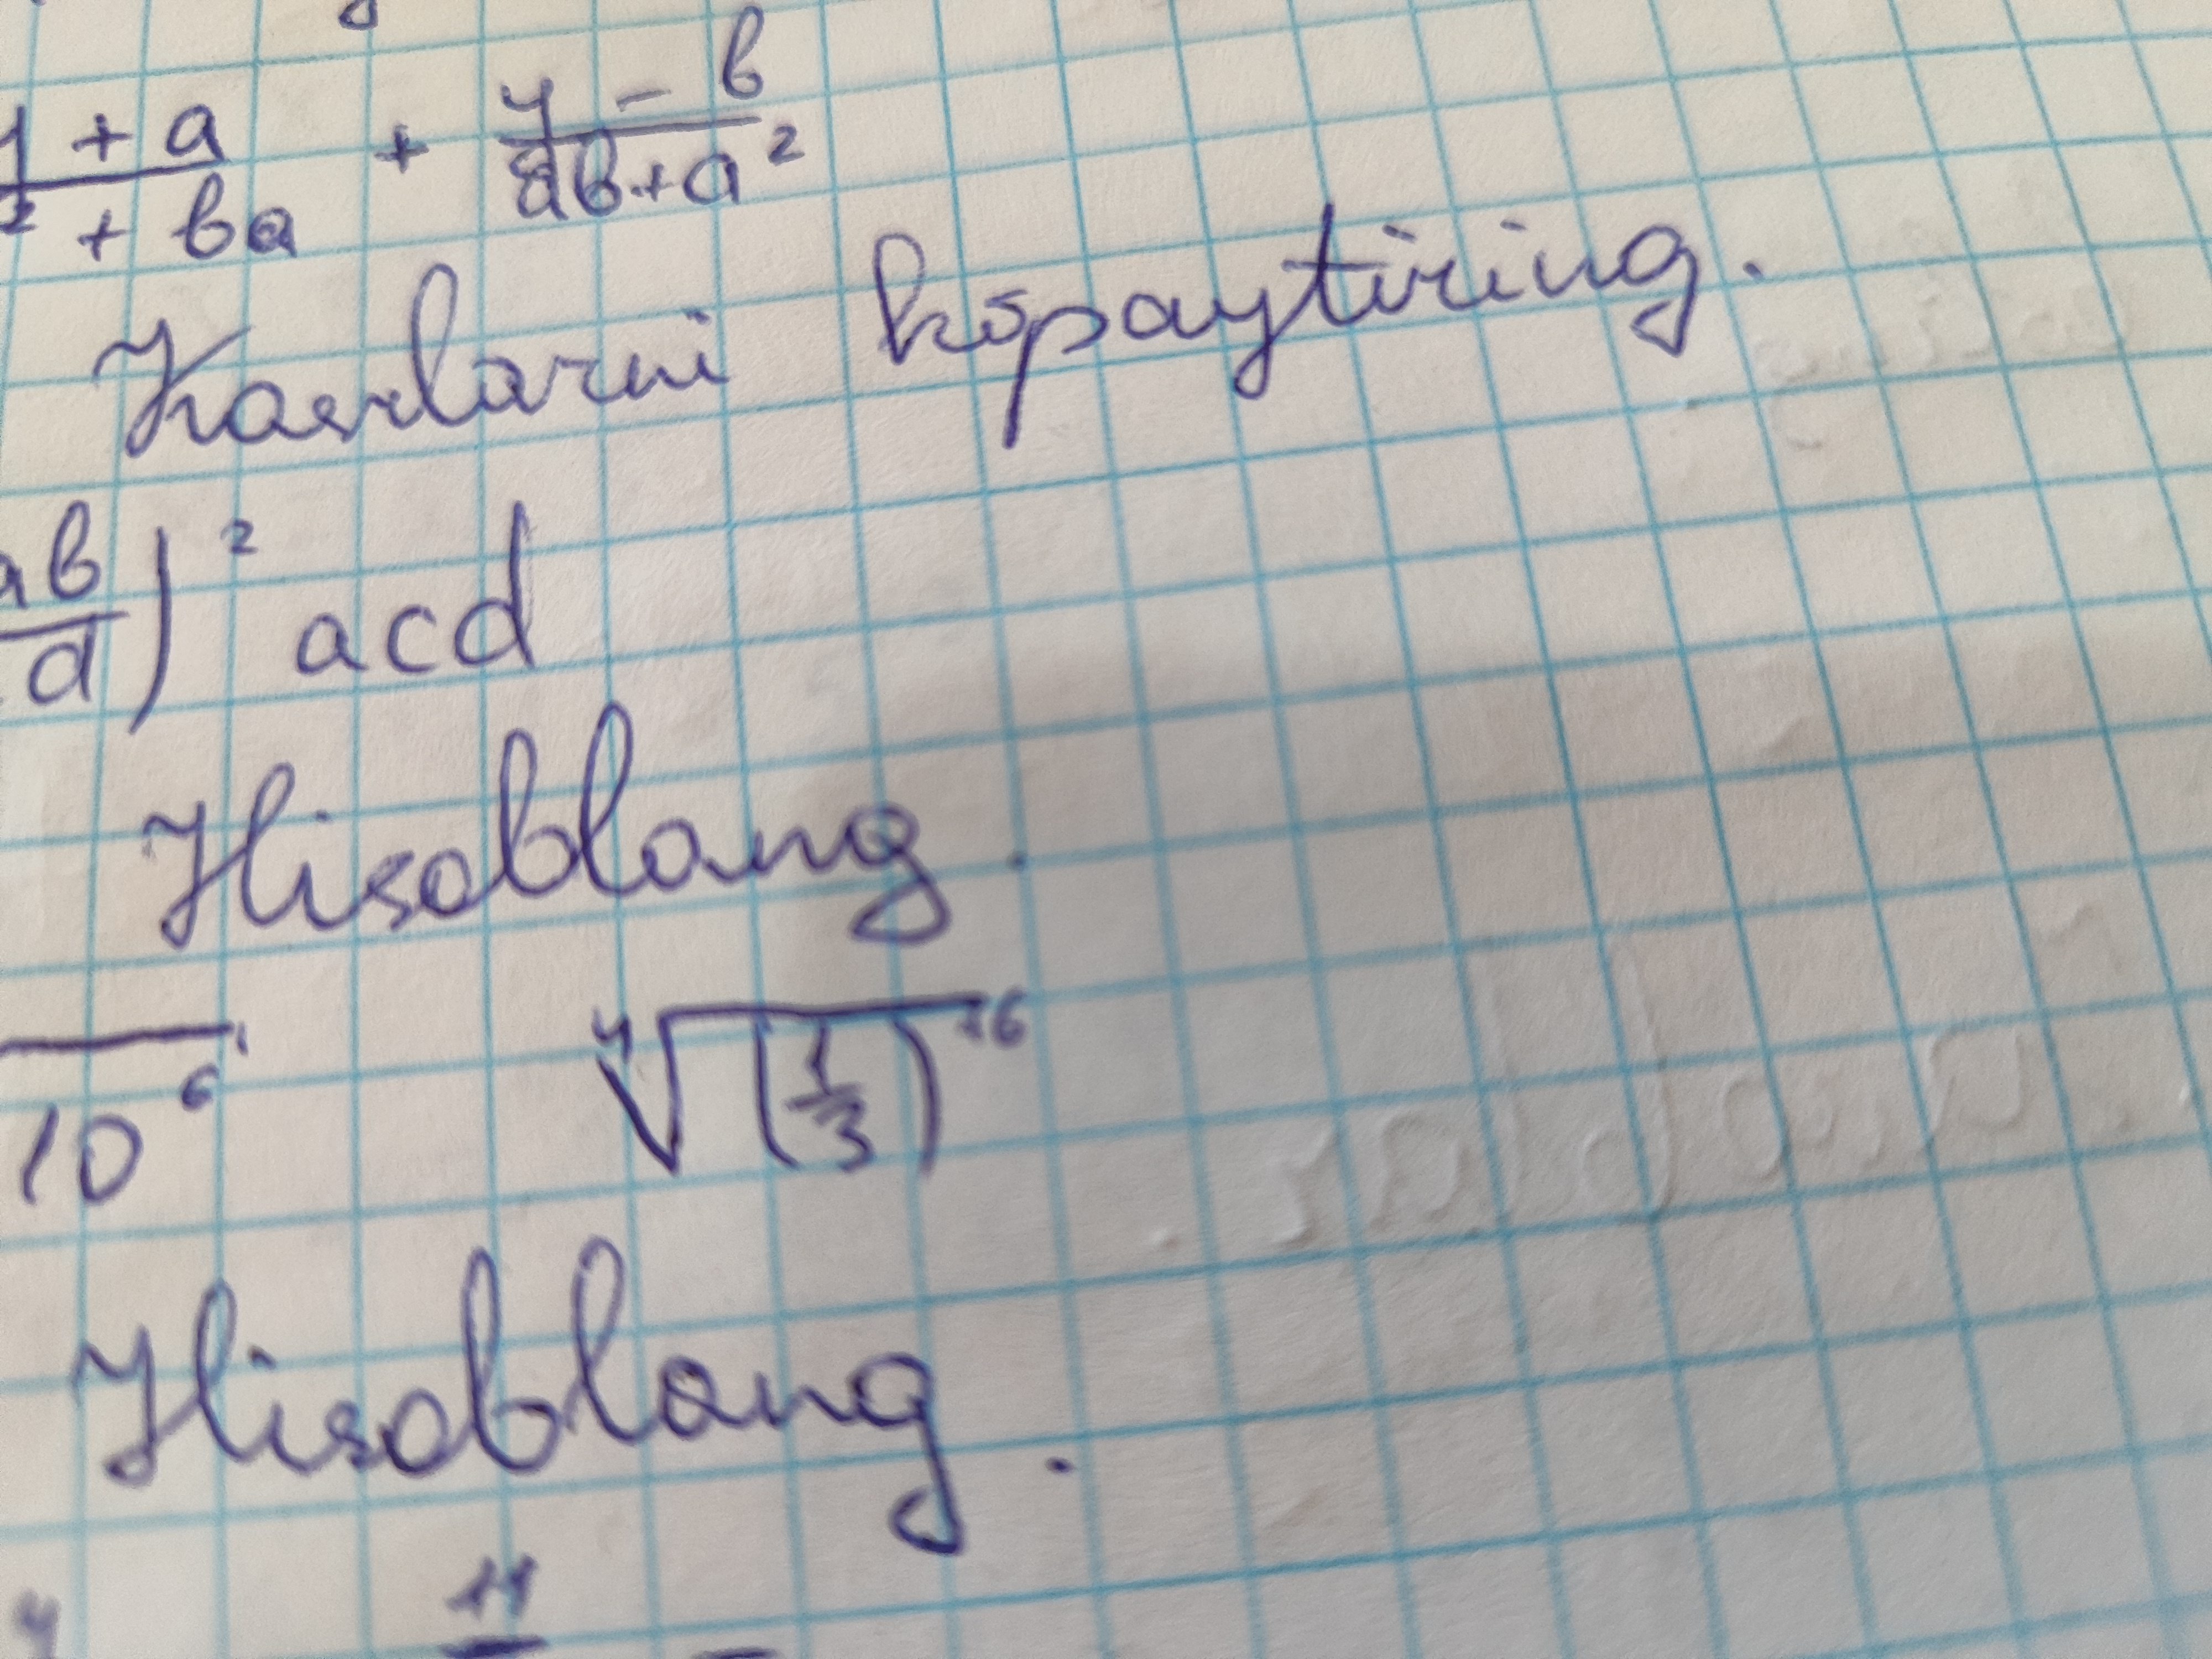 y + a / ² + ba + y - b / ab+a²
Kasrlarni ko'paytiring.
ab / d )² acd
Hisoblang.
10⁶ ⁴√(1/3)¹⁶
Hisoblang.
4 11